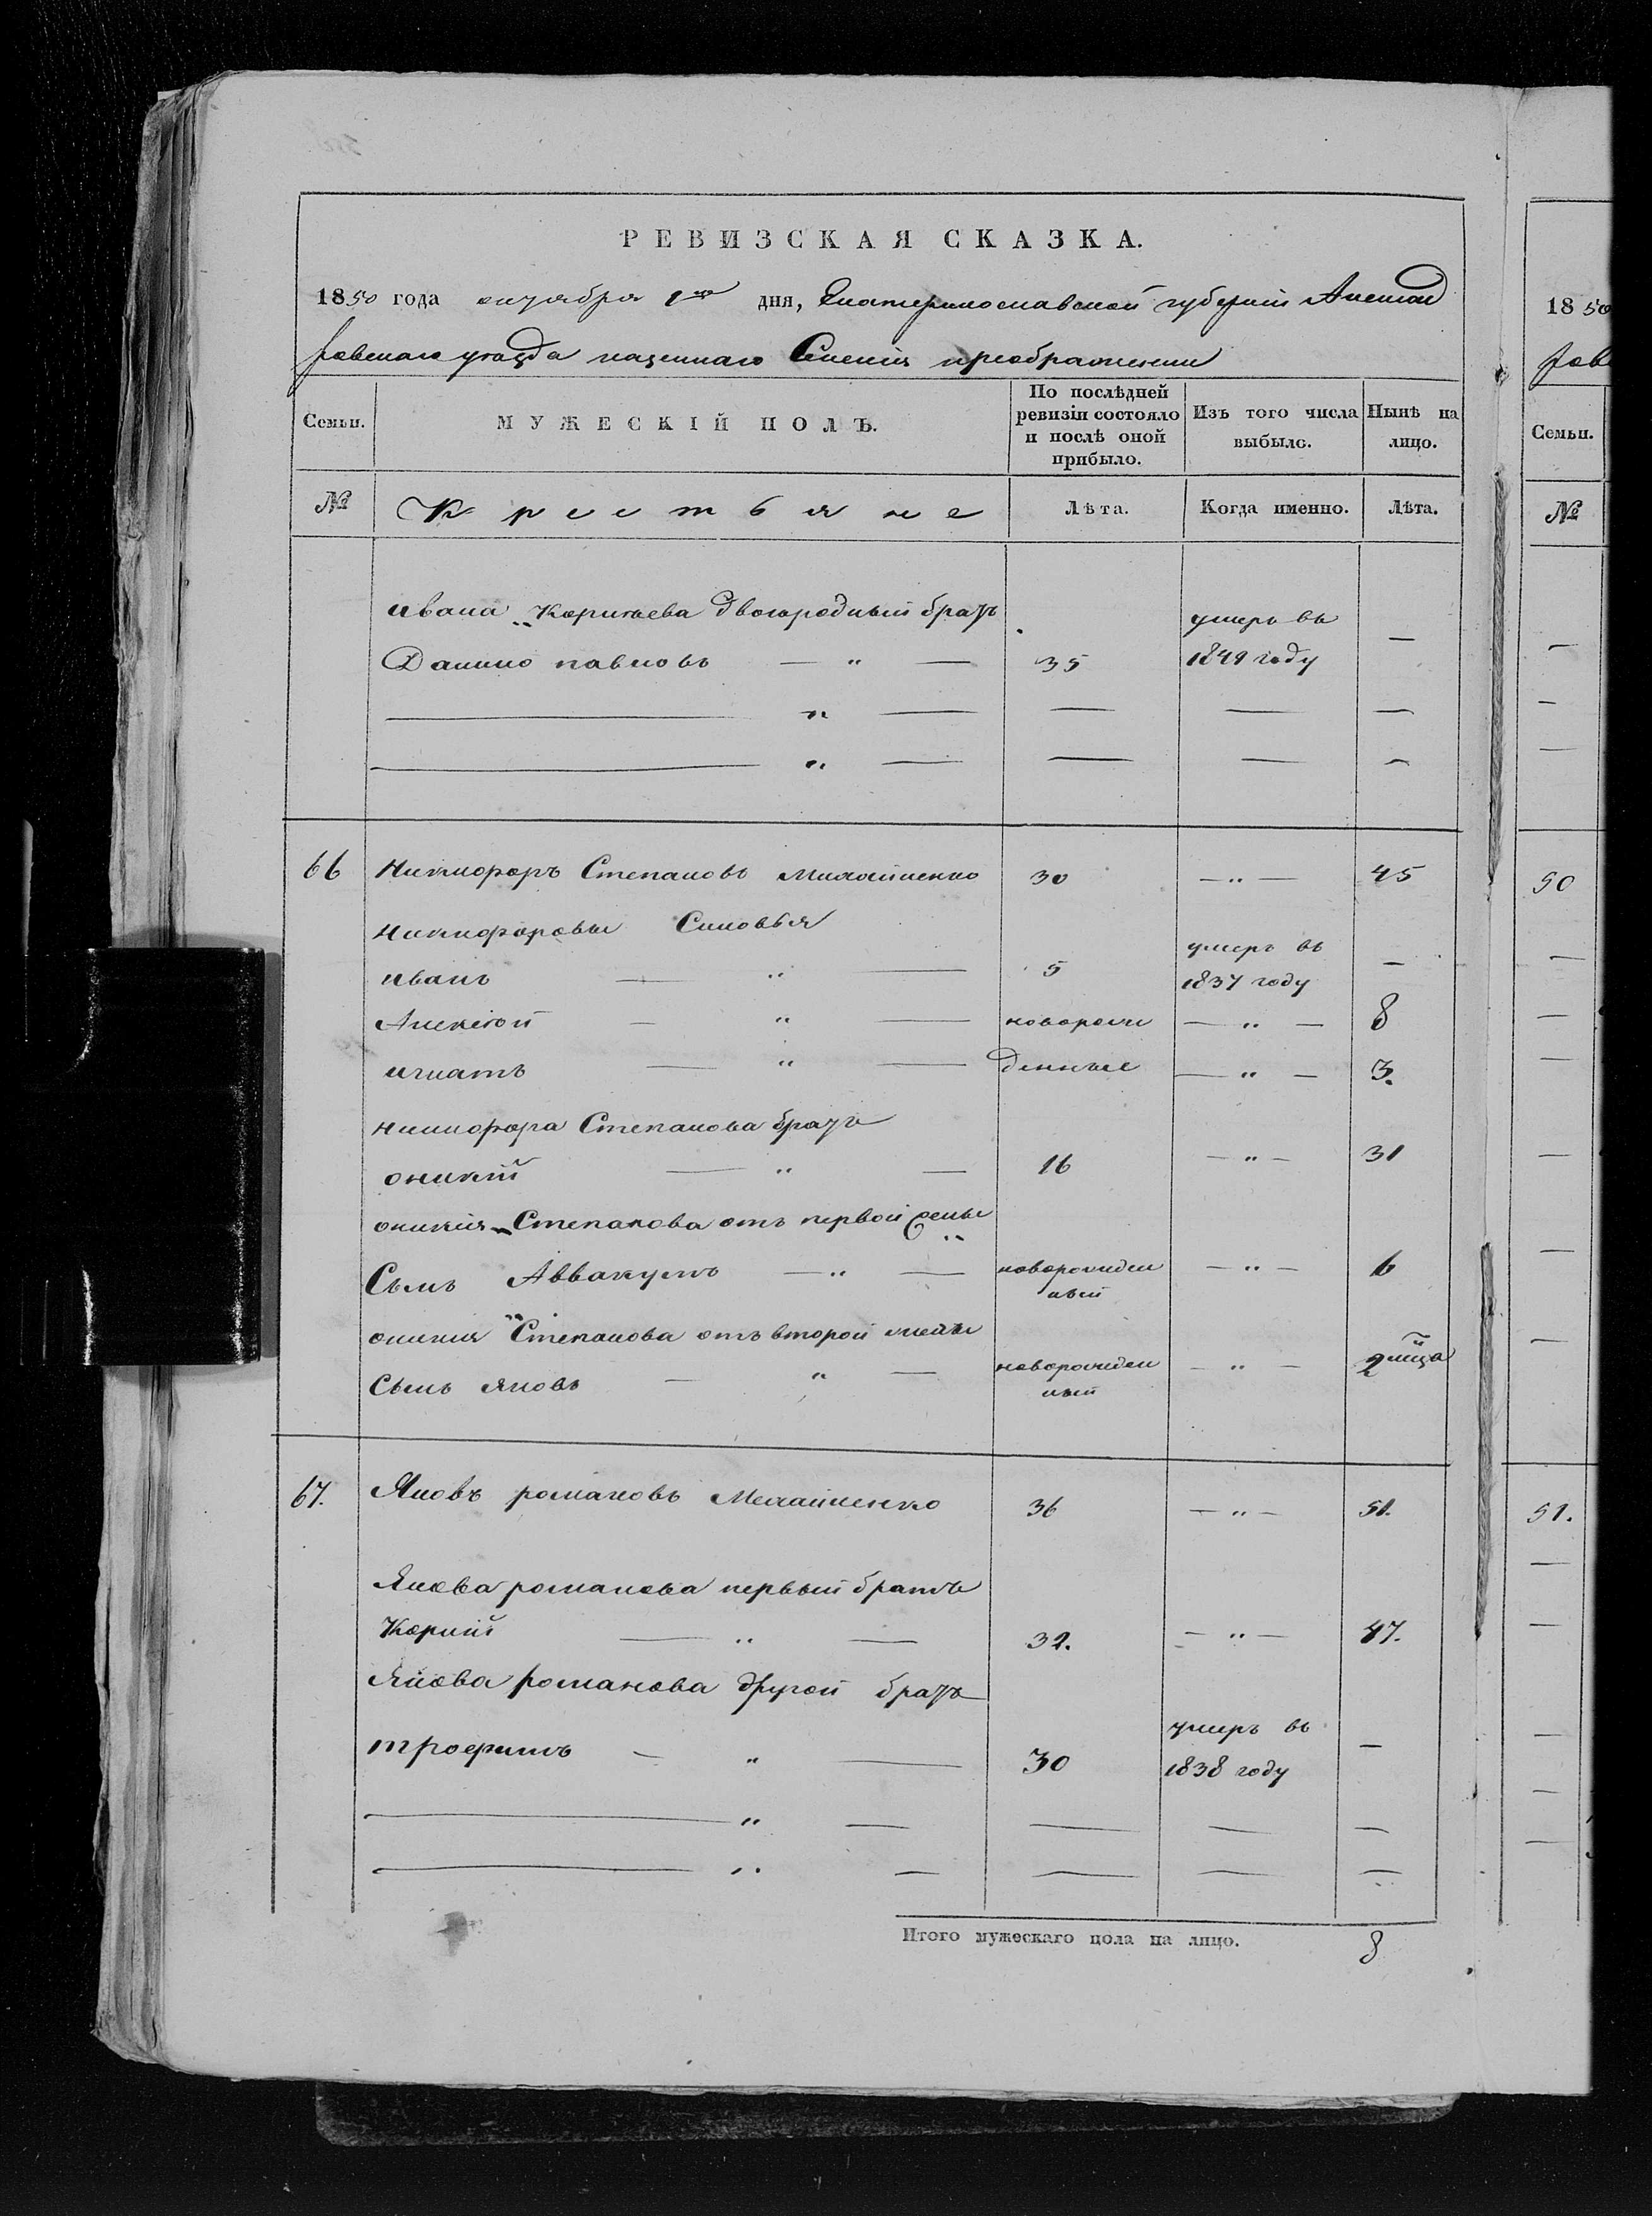 РЕВИЗСКАЯ СКАЗКА.
1850 года октября 1го дня, Екатеринославской губерніи Александ
ровскаго уезда казеннаго Сѣленія преображенки
Семьи. МУЖЕСКІЙ ПОЛЪ. По послѣдней ревизіи состояло и послѣ оной прибыло. Изъ того числа выбыло. Нынѣ на лицо.
№ Крестьяне Лѣта. Когда именно. Лѣта.
ивана Корнѣева двоюродный братъ умеръ въ
Данило павловъ — " — 35 1849 году —
— " — — — —
— " — — — —
66 Никифоръ Степановъ 30 — " — 45
Никифоровы Сыновья
иванъ — " — 5 умеръ въ 1837 году —
Алексѣй — " — новорож — " — 8
игнатъ — " — денные — " — 3.
никифора Степанова братъ
оникій — " — 16 — " — 31
оникія Степанова отъ первой жены
Сынъ Аввакумъ — " — новорожден ный — " — 6
оникия Степанова отъ второй жены
Сынъ яковъ — " — новорожден ный — " — 2 мца
67. Яковъ романовъ 36 — " — 51.
Якова романова первый братъ
Корнѣй — " — 32. — " — 47.
Якова романова другой братъ
трофимъ — " — 30 умеръ въ 1838 году —
— " — — — —
— " — — — —
Итого мужескаго пола на лицо. 8
18 50
ров
Семьи.
№
50
51.